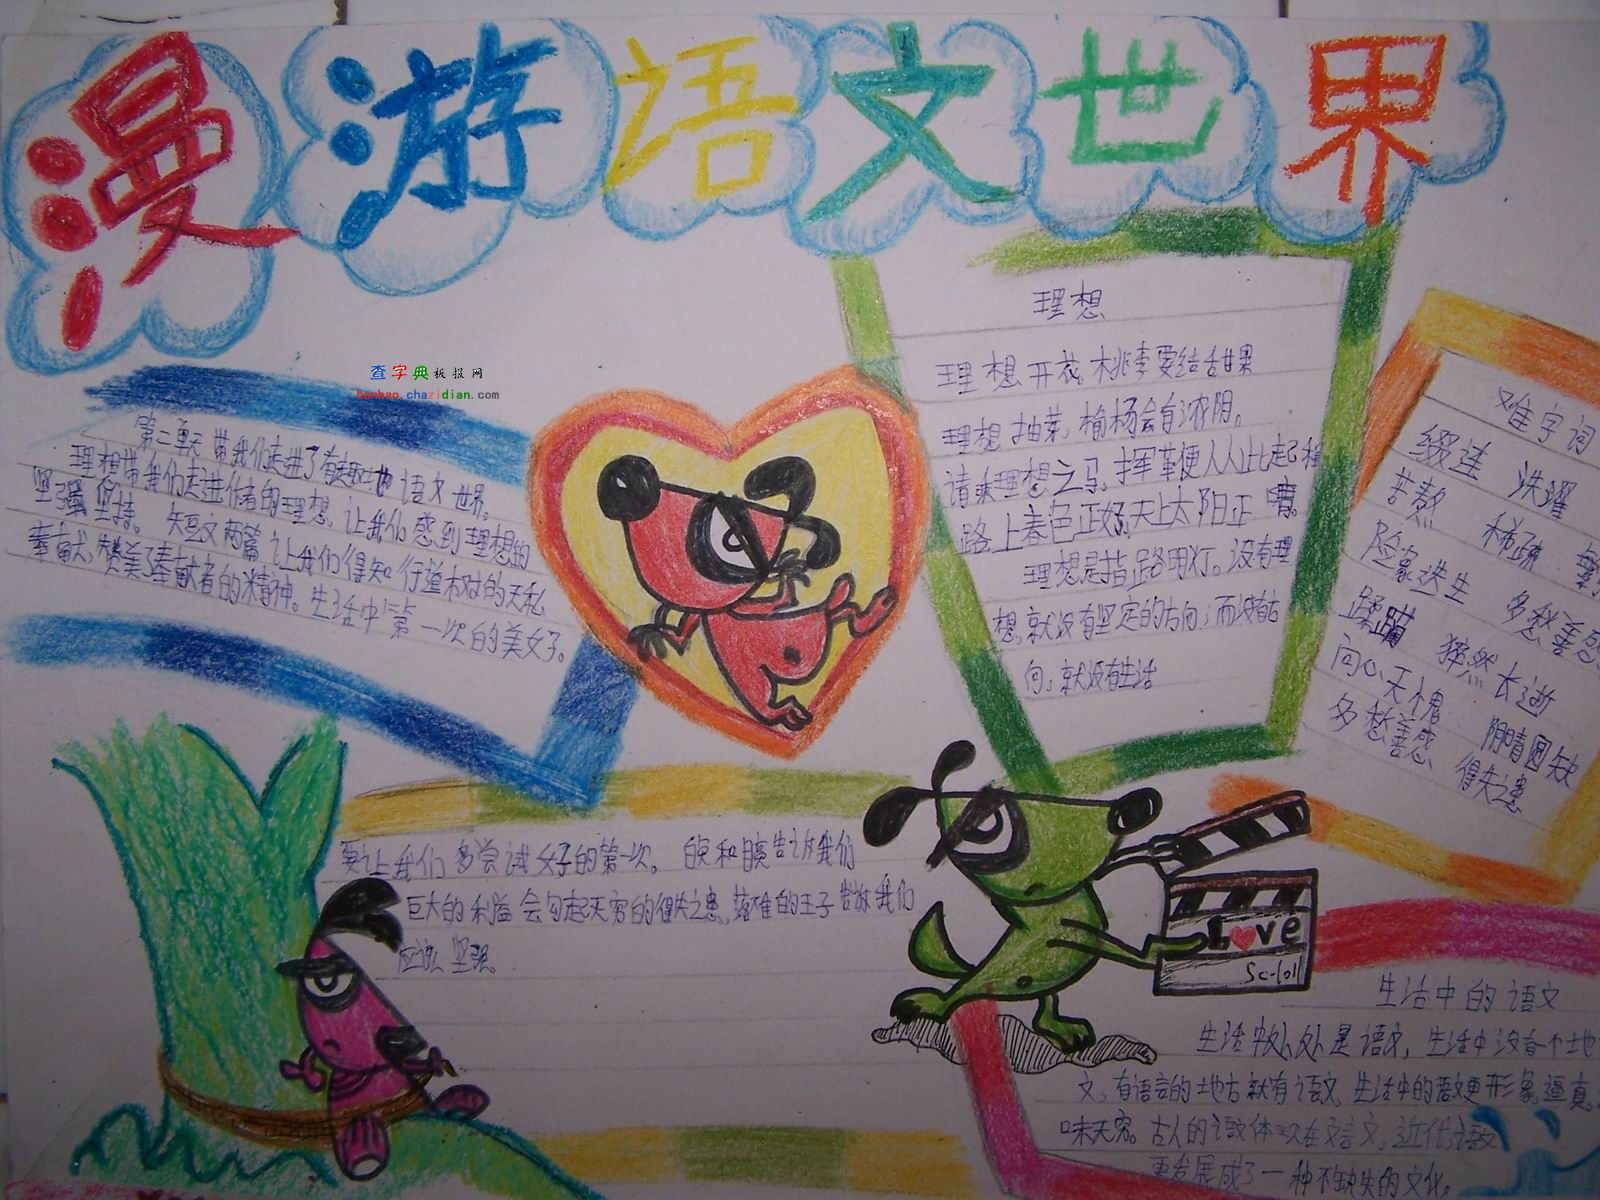 漫游语文世界
查字典板报网
banbao.chazidian.com
第二单元带我们走进了有趣地语文世界。
理想带我们走进作者的理想,让我们感到理想的
坚强坚持。短文两篇让我们得知行道树的无私
奉献,赞美了奉献者的精神。生活中第一次的美好。
要让我们多尝试好的第一次。
告诉我们
巨大的利益会勾起无穷的得失之患,落难的王子告诉我们
应该坚强
理想
理想开花,桃李要结甜果
理想抽芽,榆杨会有浓阴。
请乘理想之马,挥革便从此起程
路上春色正好,天上太阳正晴。
理想是指路明灯。没有理
想,就没有坚定的方向;而没有方
向,就没有生活
难字词
缀连 洗濯
苦熬 稀疏
险象迭生 多愁善感
蹂躏 猝然长逝
问心无愧 阴晴圆缺
多愁善感 得失之患
Love
Sc-101
生活中的语文
生活中处处是语文,生活中没有个地
文,有语言的地方就有语文,生活中的语文更形象,逼真,
味无穷。古人的语文体现在文言文,近代语文
更发展成了一种不缺失的文化。